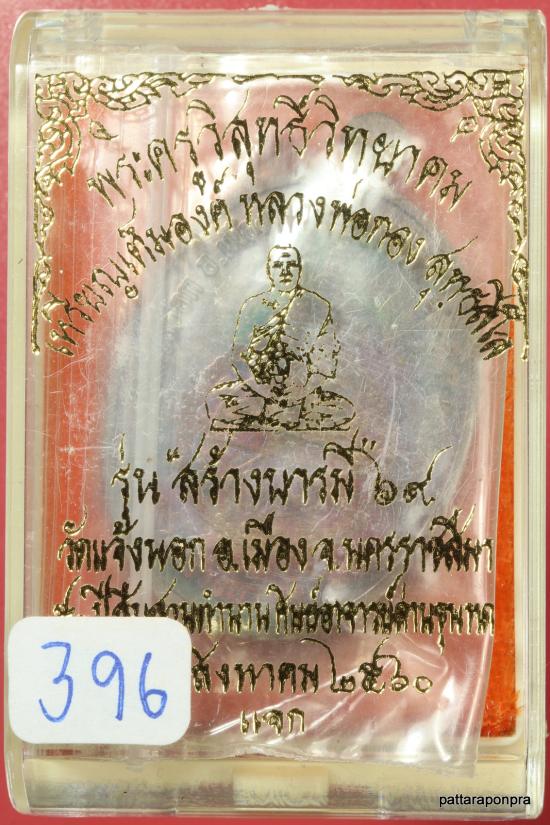 พระครูวิสุทธิ์วิทยาคม
เหรียญเต็มองค์ หลวงพ่อทอง สุทธสีโล
รุ่น "สร้างบารมี" ๖๙
อ.เมือง จ.นครราชสีมา
ศิษย์อาจารย์ด่านขุนทด
สิงหาคม ๒๕๖๐
แจก
396
pattaraponpra